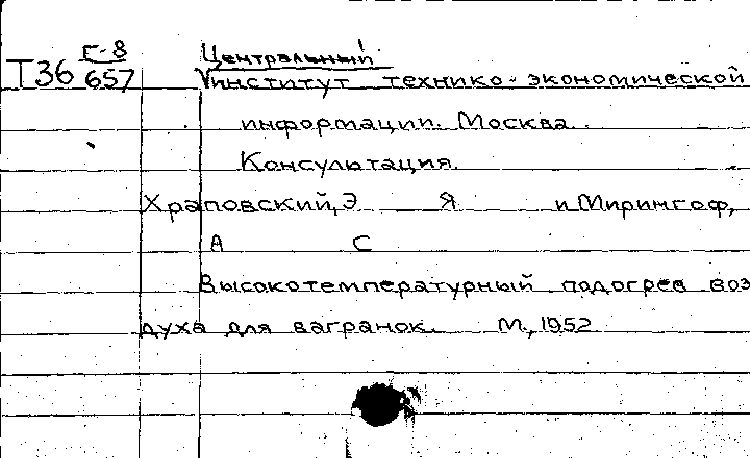 Т36 Г-8 Центральный
657 институт технико-экономической
информации. Москва.
Консультация.
Храповский, Э Я и Мирингоф,
А С
Высокотемпературный подогрев воз
духа для вагранок. М., 1952